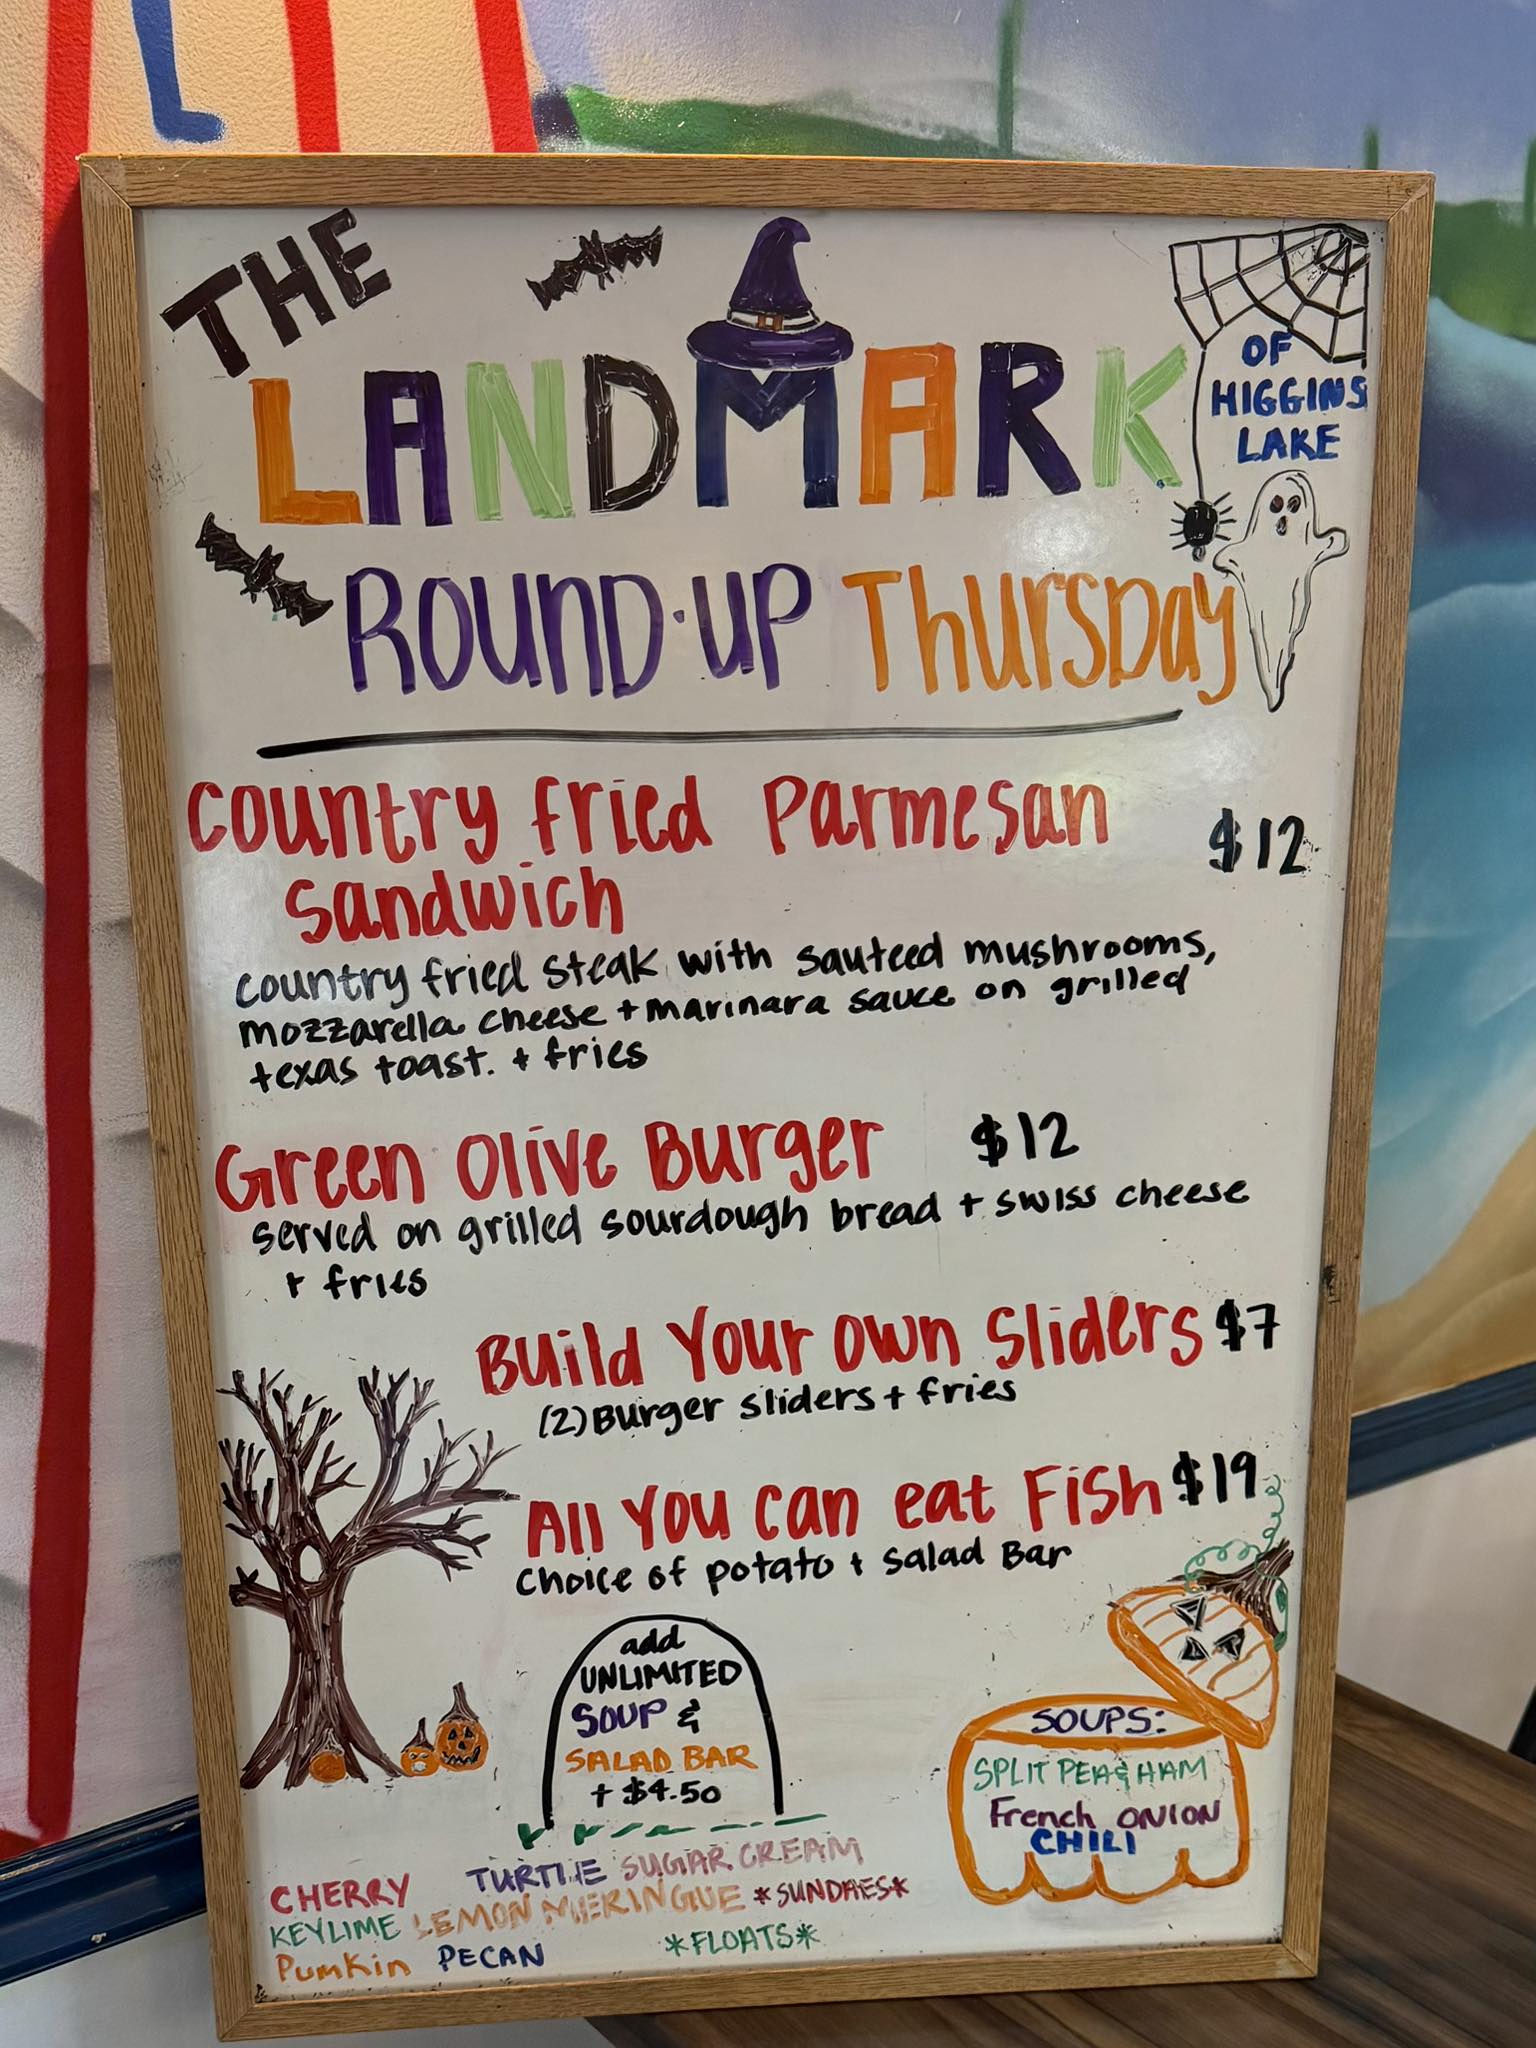 THE
LANDMARK
OF
HIGGINS
LAKE
ROUND-UP THURSDAY
Country Fried Parmesan
Sandwich
$12
country fried steak with sauteed mushrooms,
mozzarella cheese + marinara sauce on grilled
texas toast. + fries
Green Olive Burger $12
served on grilled sourdough bread + swiss cheese
+ fries
Build Your Own Sliders $7
(2) Burger sliders + fries
All You Can eat Fish $19
Choice of potato + Salad Bar
add
UNLIMITED
SOUP &
SALAD BAR
+ $4.50
SOUPS:
SPLIT PEA & HAM
French ONION
CHILI
CHERRY TURTLE SUGAR CREAM
KEYLIME LEMON MERINGUE *SUNDAES*
Pumkin PECAN *FLOATS*